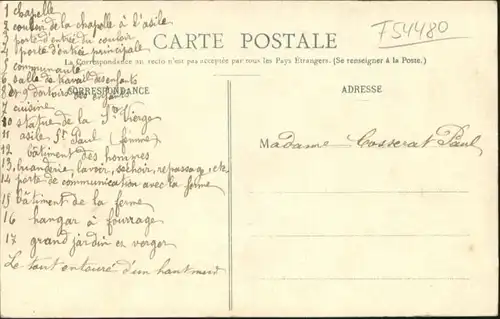 1 chapelle
2 couloir de la chapelle à l'asile
3 porte d'entrée du couloir
4 porte d'entrée principale
5 communauté
6 salle de travail des enfants
8 et 9 dortoirs des enfants
7 cuisine
10 statue de la Ste Vierge
11 asile St Paul (femme)
12 bâtiment des hommes
13, buanderie, lavoir, séchoir, repassage, etc
14 porte de communication avec la ferme
15 bâtiment de la ferme
16 hangar à fourrage
17 grand jardin et verger
Le tout entouré d'un haut mur
F54480
CARTE POSTALE
La Correspondance au recto n'est pas acceptée par tous les Pays Étrangers. (Se renseigner à la Poste.)
CORRESPONDANCE
ADRESSE
Madame Cosserat Paul